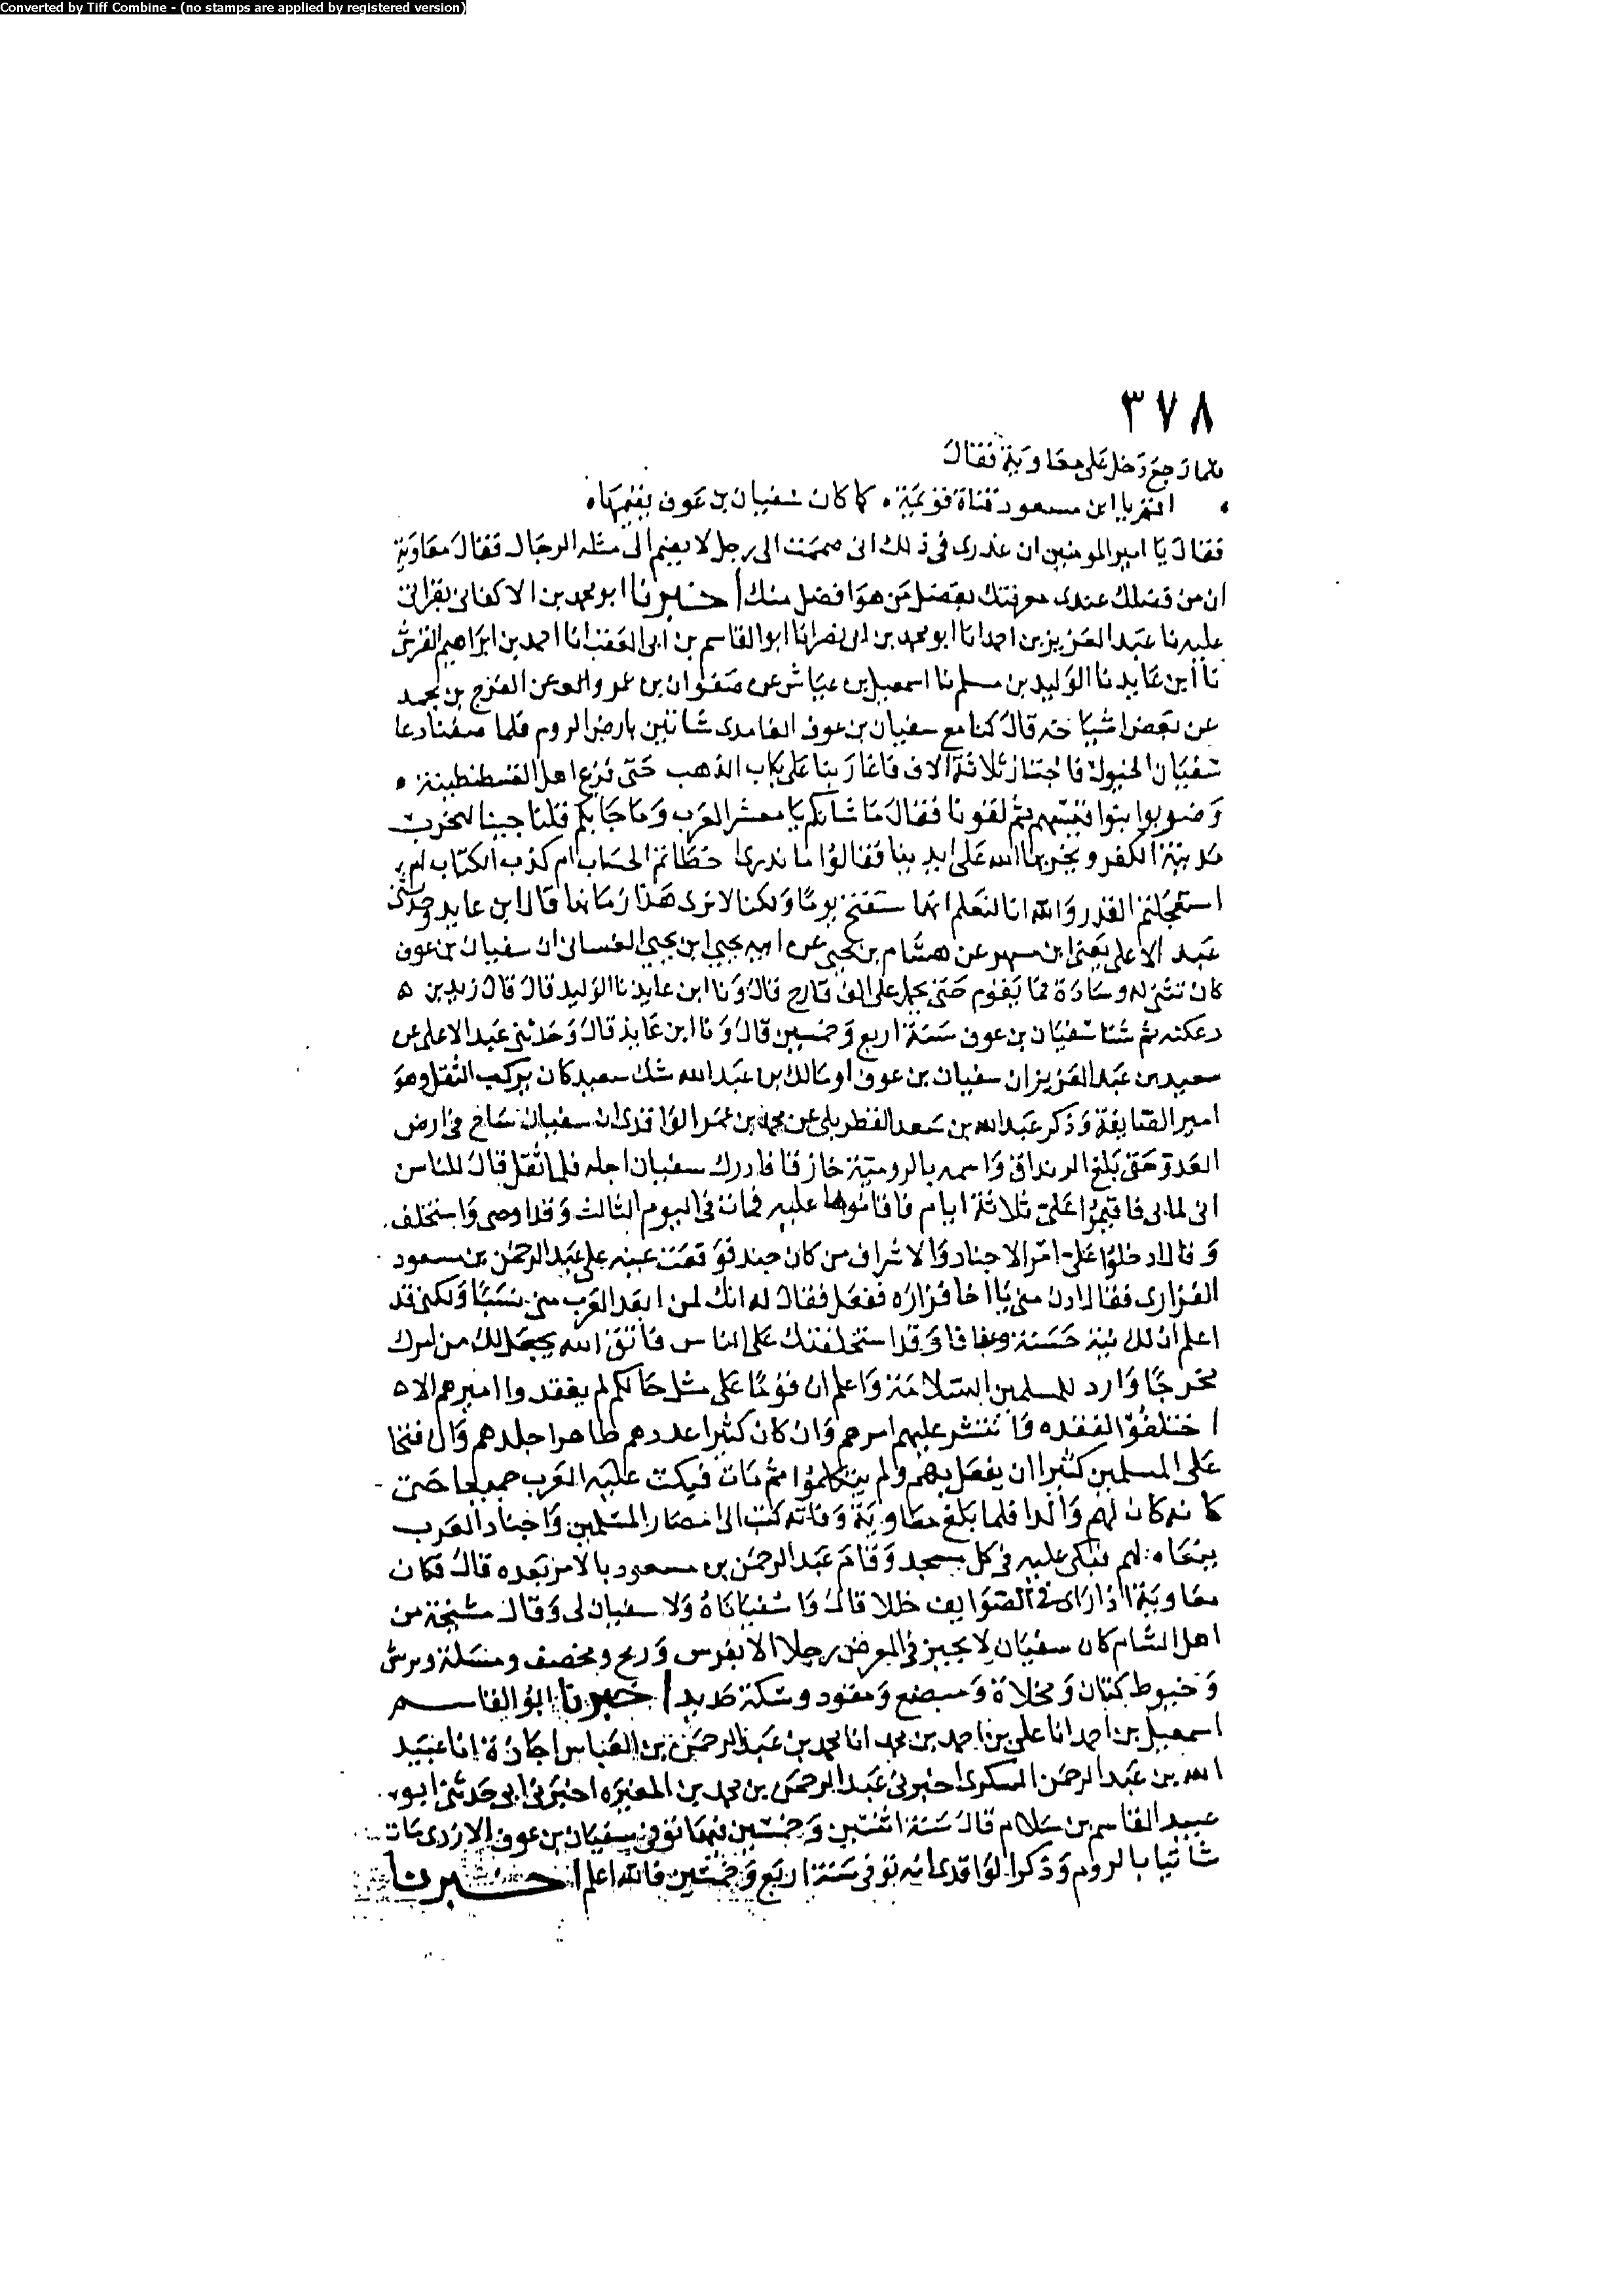 Converted by Tiff Combine - (no stamps are applied by registered version)
٣٧٨
فلما رجع دخل على معاوية فقال
اقم يا ابن مسعود قناة قويمة كما كان سفيان بن عوف يقيمها
فقال يا امير المومنين ان عذرى فى ذلك انى ضممت الى رجل لا يضم الى مثله الرجال فقال معاوية
ان من فضلك عندى معرفتك بفضل من هو افضل منك اخبرنا ابو محمد بن الاكفانى بقراتى
عليه نا عبد العزيز بن احمد انا ابو محمد بن ابى نصر انا ابو القاسم بن ابى العقب انا احمد بن ابراهيم القرشى
نا ابن عايد نا الوليد بن مسلم نا اسمعيل بن عياش عن صفوان بن عمرو عن الفرج بن يحمد
عن بعض اشياخه قال كنا مع سفيان بن عوف الغامدى شاتين بارض الروم فلما صفنا دعا
سفيان الخيول فاختار ثلاثة الاف فاغار بنا على باب الذهب حتى فزع اهل القسطنطينية
وضربوا بنواقيسهم ثم لقونا فقال ما شانكم يا معشر العرب وما جا بكم قلنا جينا لنخرب
مدينة الكفر ويخربها الله على ايدينا فقالوا ما ندرى اخطاتم الحساب ام كذب الكتاب ام
استعجلتم القدر والله انا لنعلم انها ستفتح يوما ولكنا لا نرى هذا زمانها قال ابن عايد وحدثنى
عبد الاعلى يعنى ابن مسهر عن هشام بن يحيى عن ابيه يحيى ابن يحيى الغسانى ان سفيان بن عوف
كان تثنى له وسادة فما يقوم حتى يحمل على الف قارح قال ونا ابن عايد نا الوليد قال قال زيد بن
دعكنه ثم شتا سفيان بن عوف سنة اربع وخمسين قال ونا ابن عايذ قال وحدثنى عبد الاعلى عن
سعيد بن عبد العزيز ان سفيان بن عوف او مالك بن عبد الله شك سعيد كان يركب الثقل وهو
امير الصايفة وذكر عبد الله بن سعد القطربلى عن محمد بن عمر الواقدى ان سفيان ساح فى ارض
العدو حتى بلغ الرنداق واسمه بالرومية خازقا فادرك سفيان اجله فلما ثقل قال للناس
انى لما بى فاقيموا على ثلاثة ايام فاقاموها عليه فمات فى اليوم الثالث وقد اوصى واستخلف
وقال ادخلوا على امرا الاجناد والاشراف من كل جند فوقعت عينه على عبد الرحمن بن مسعود
الفزارى فقال ادن منى يا اخا فزاره ففعل فقال له انك لمن ابعد العرب منى نسبا ولكن قد
اعلم ان لك نية حسنة وعفافا وقد استخلفتك على الناس فاتق الله يجعل لك من امرك
مخرجا وارد للمسلمين السلامة واعلم ان قوما على مثل حالكم لم يفقدوا اميرهم الا
اختلفوا لفقده وانتشر عليهم امرهم وان كان كثيرا عددهم ظاهرا جلدهم وان فتحا
على المسلمين كثيرا ان يقفل بهم ولم يتكلموا ثم مات فبكت عليه العرب جميعا حتى
كانه كان لهم والدا فلما بلغ معاوية وفاته كتب الى امصار المسلمين واجناد العرب
ينعاه لهم فبكى عليه فى كل مسجد وقام عبد الرحمن بن مسعود بالامر بعده قال فكان
معاوية اذا راى فى الصوايف خللا قال وا سفياناه ولا سفيان لى وقال مشيخة من
اهل الشام كان سفيان لا يجيز فى العرض رجلا الا بفرس ورمح ومخصف ومسلة وبرس
وخيوط كتان ومخلاة ومبضع ومقود وسكة حديد اخبرنا ابو القاسم
اسمعيل بن احمد انا على بن احمد بن محمد انا محمد بن عبد الرحمن بن العباس اجازة انا عبيد
الله بن عبد الرحمن السكرى اخبرنى عبد الرحمن بن محمد بن المغيره اخبرنى ابى حدثنى ابو
عبيد القاسم بن سلام قال سنة اثنتين وخمسين فيها توفى سفيان بن عوف الازدى مات
شاتيا بالروم وذكر الواقدى انه توفى سنة اربع وخمسين فالله اعلم اخبرنا